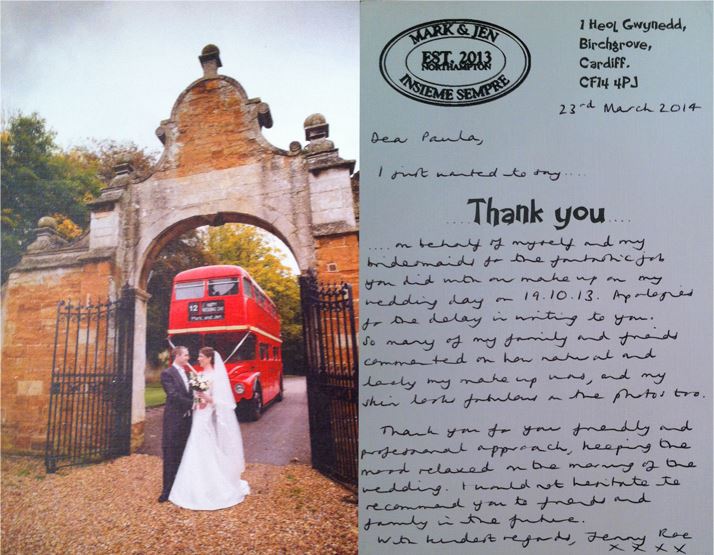 12
HAPPY
WEDDING DAY
Mark and Jen
MARK & JEN
EST. 2013
NORTHAMPTON
INSIEME SEMPRE
1 Heol Gwynedd,
Birchgrove,
Cardiff.
CF14 4PJ
23rd March 2014
Dear Paula,
I just wanted to say....
....Thank you....
....on behalf of myself and my
bridesmaids for the fantastic job
you did with our make up on my
wedding day on 19.10.13. Apologies
for the delay in writing to you.
So many of my family and friends
commented on how natural and
lovely my make up was, and my
skin looks fabulous in the photos too.
Thank you for your friendly and
professional approach, keeping the
mood relaxed on the morning of the
wedding. I would not hesitate to
recommend you to friends and
family in the future.
With kindest regards, Jenny Rae
x x x x